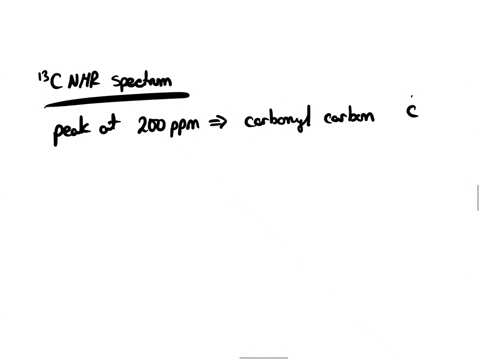 ¹³C NMR spectrum
peak at 200 ppm ⇒ carbonyl carbon C